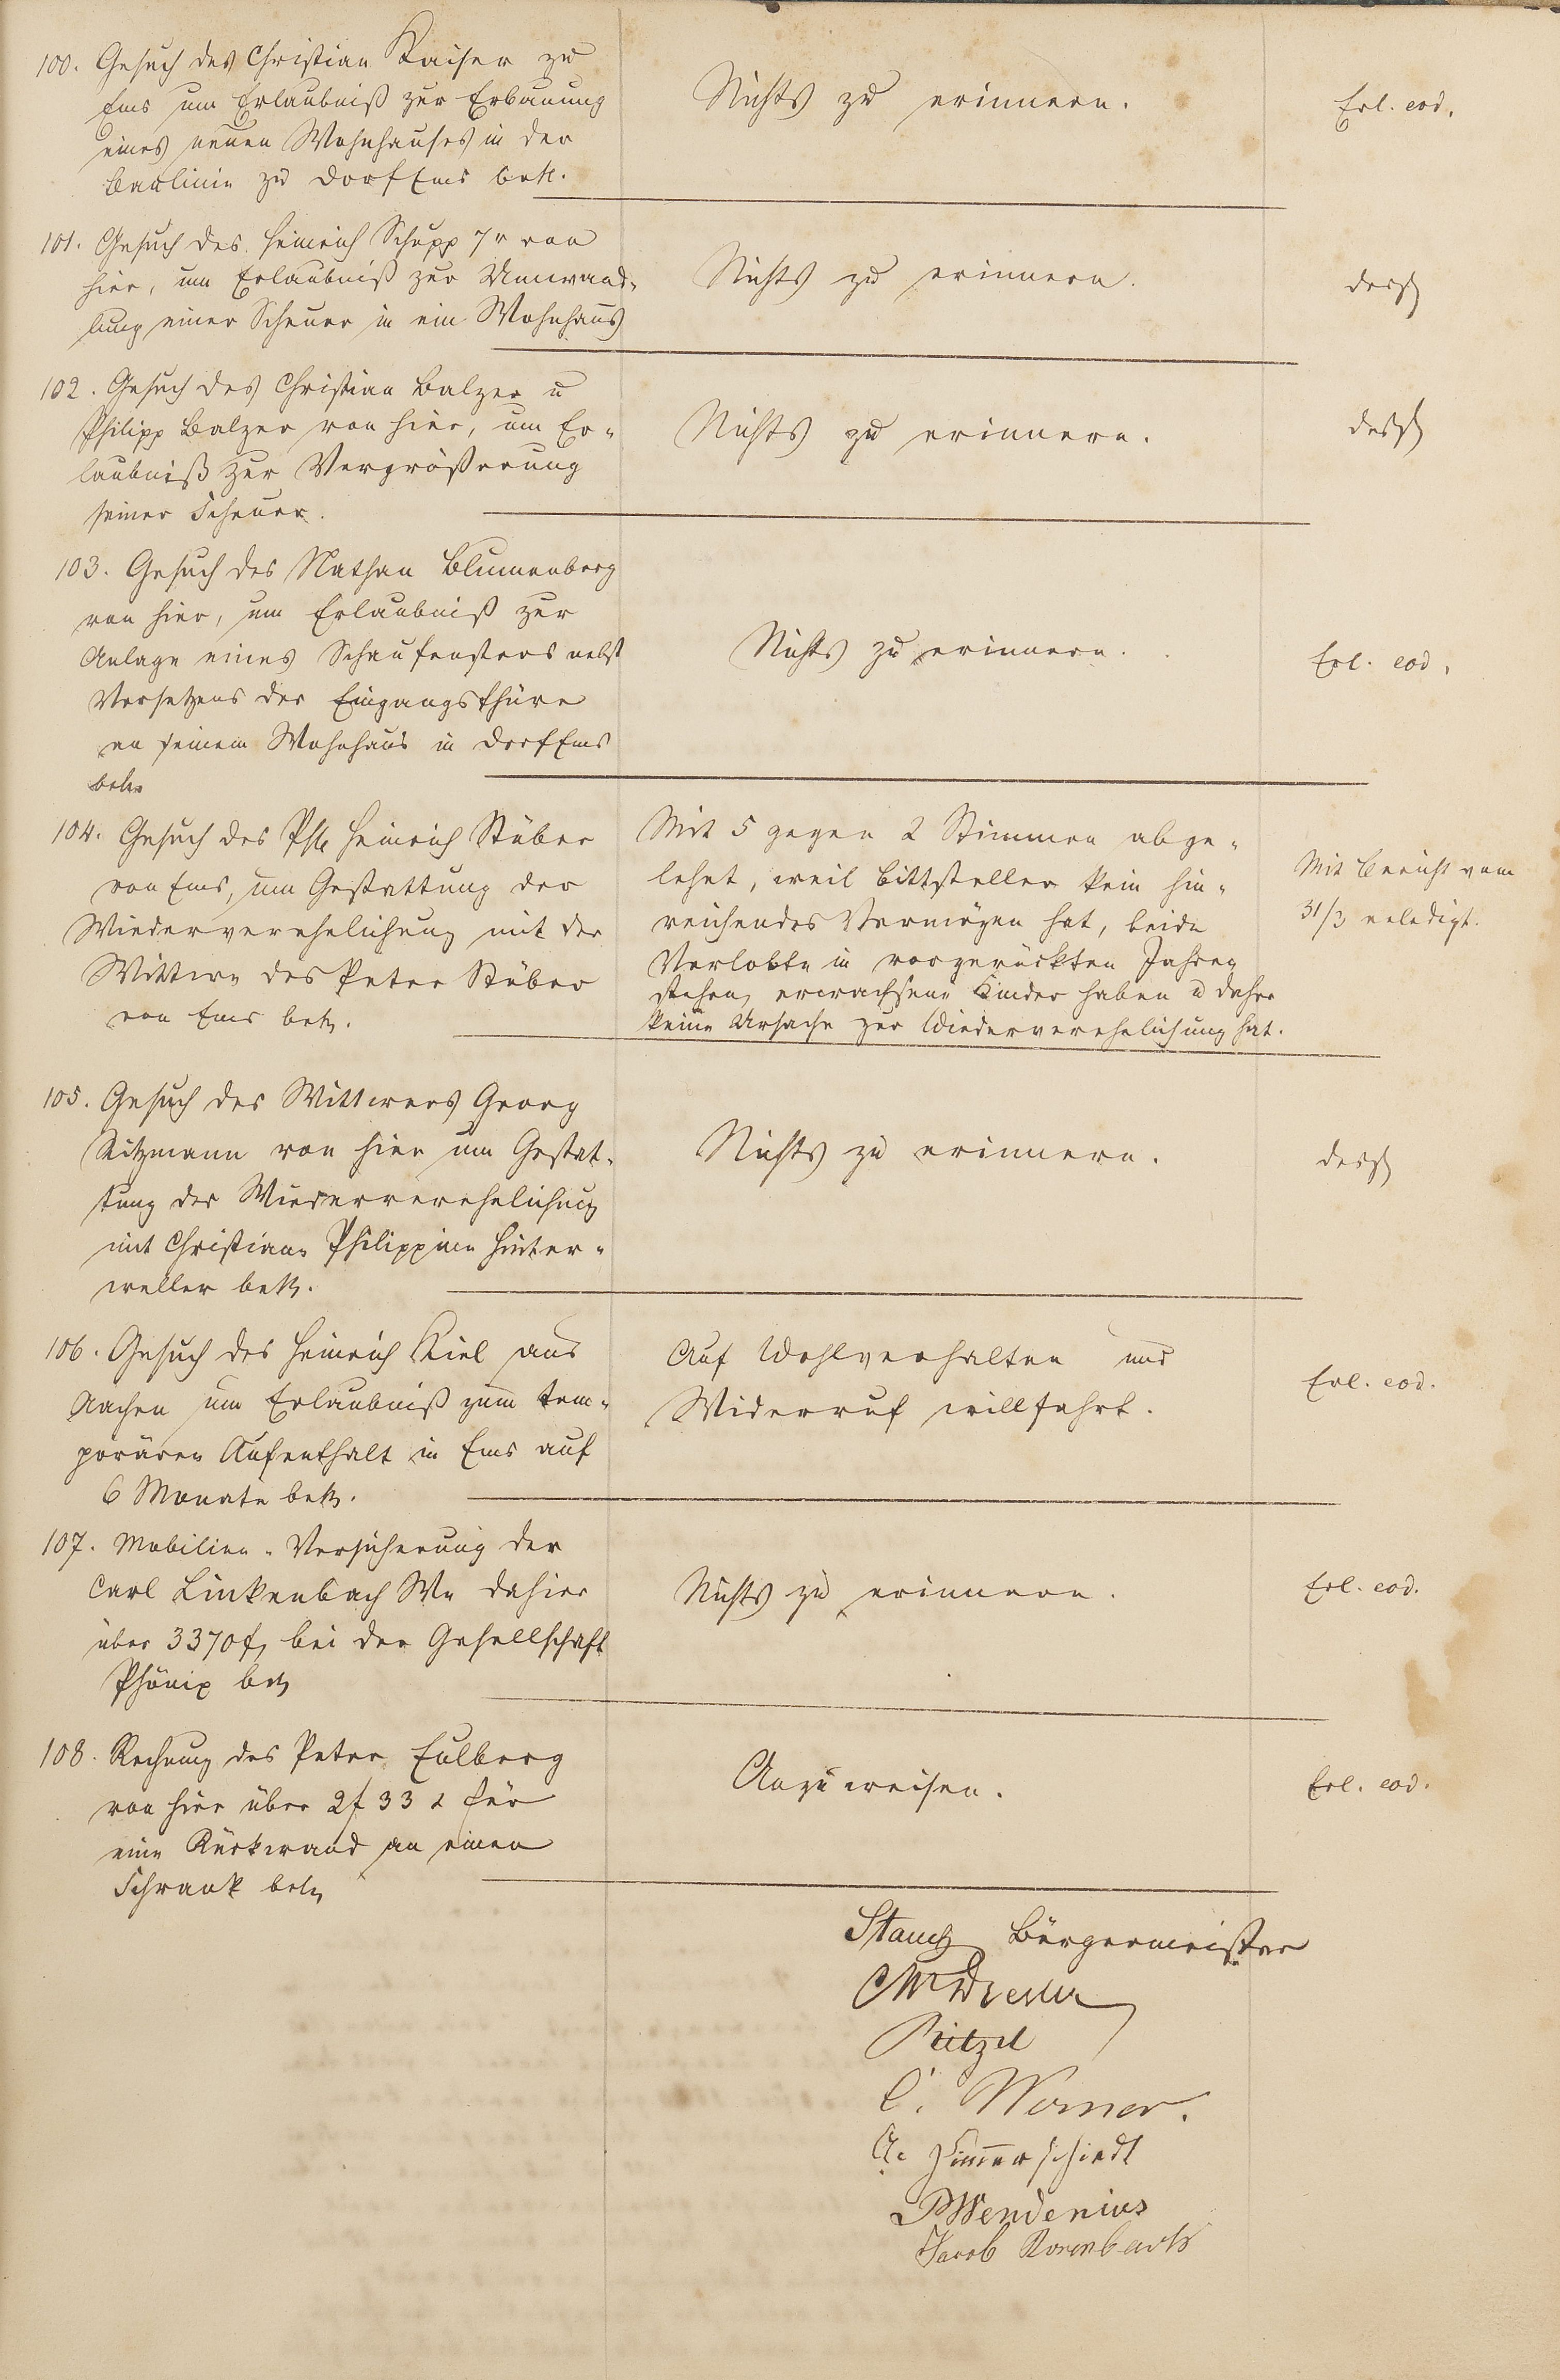 100. Gesuch des Christian Kaiser zu
Ems um Erlaubniß zur Erbauung
eines neuen Wohnhauses in der
Baulinie zu Dorf Ems betr.
Nichts zu erinnern.
Erl. eod.
101. Gesuch des Heinrich Schupp 7r von
hier, um Erlaubniß zur Umwand-
lung einer Scheuer in ein Wohnhaus
Nichts zu erinnern.
102. Gesuch des Christian Balzer u
Philipp Balzer von hier, um Er-
laubniß zur Vergrößerung
seiner Scheuer.
Nichts zu erinnern.
103. Gesuch des Nathan Blumenberg
von hier, um Erlaubniß zur
Anlage eines Schaufensters nebst
Versetzens der Eingangsthüre
an seinem Wohnhaus in Dorf Ems
betr
Nichts zu erinnern.
Erl. eod.
104. Gesuch des Phil Heinrich Stüber
von Ems, um Gestattung der
Wiederverehelichung mit der
Wittwe des Peter Stüber
von Ems betr.
Mit 5 gegen 2 Stimmen abge-
lehnt, weil Bittsteller kein hin-
reichendes Vermögen hat, beide
Verlobte in vorgerückten Jahren
stehen, erwachsene Kinder haben u daher
keine Ursache zur Wiederverehelichung hat.
Mit Bericht vom
31/3 erledigt.
105. Gesuch des Wittwers Georg
Sitzmann von hier um Gestat-
tung der Wiederverehelichung
mit Christiane Philippine Hinter-
weller betr.
Nichts zu erinnern.
106. Gesuch des Heinrich Kiel aus
Aachen um Erlaubniß zum tem-
porären Aufenthalt in Ems auf
6 Monate betr.
Auf Wohlverhalten und
Widerruf willfahrt.
Erl. eod.
107. Mobilien-Versicherung der
Carl Linkenbach We dahier
über 3370 f, bei der Gesellschaft
Phönix betr
Nichts zu erinnern.
Erl. eod.
108. Rechnung des Peter Eulberg
von hier über 2f 33 x für
eine Rückwand an einen
Schrank betr
Anzuweisen.
Erl. eod.
Stauch Bürgermeister
Pitzel
C. Werner.
A. Zimmerschiedt
PWendenius
Jacob Rosenbach